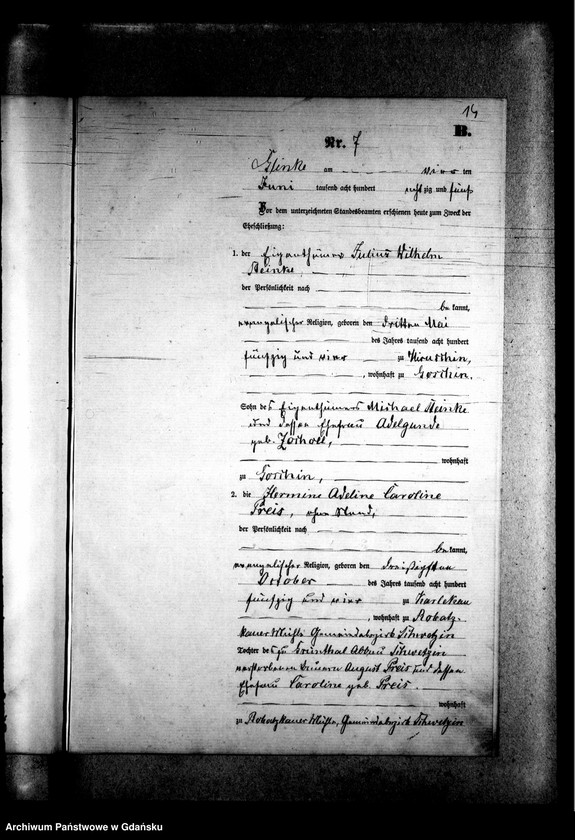 14
B.
Nr. 7
Glinke am vier ten
Juni tausend acht hundert acht zig und fünf
Vor dem unterzeichneten Standesbeamten erschienen heute zum Zweck der
Eheschließung:
1. der Eigenthümer Julius Wilhelm
Steinke,
der Persönlichkeit nach
be kannt,
evangelischer Religion, geboren den dritten Mai
des Jahres tausend acht hundert
fünfzig und vier zu
, wohnhaft zu Gorschin.
Sohn des Eigenthümers Michael Steinke
und dessen Ehefrau Adelgunde
geb.
wohnhaft
zu Gorschin,
2. die Hermine Adeline Caroline
Preis, ohne Stand,
der Persönlichkeit nach
be kannt,
evangelischer Religion, geboren den dreißigsten
October des Jahres tausend acht hundert
fünfzig und vier zu Karlekau
, wohnhaft zu
Gemeindebezirk
Tochter des zu Grünthal Abbau
verstorbenen August Preis und dessen
Ehefrau Caroline geb. Preis.
wohnhaft
zu Gemeindebezirk
Archiwum Państwowe w Gdańsku